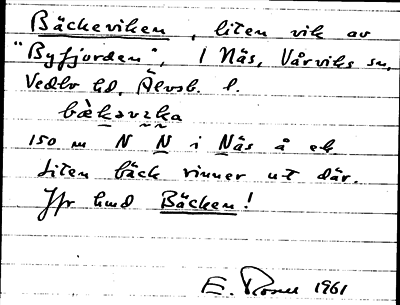 Bäckeviken, liten vik av
"Byfjorden", 1 Näs, Vårviks sn,
Vedbo hd, Älvsb. l.
150 m N N i Näs å ek
Liten bäck rinner ut där.
Jfr hmd Bäcken!
1961